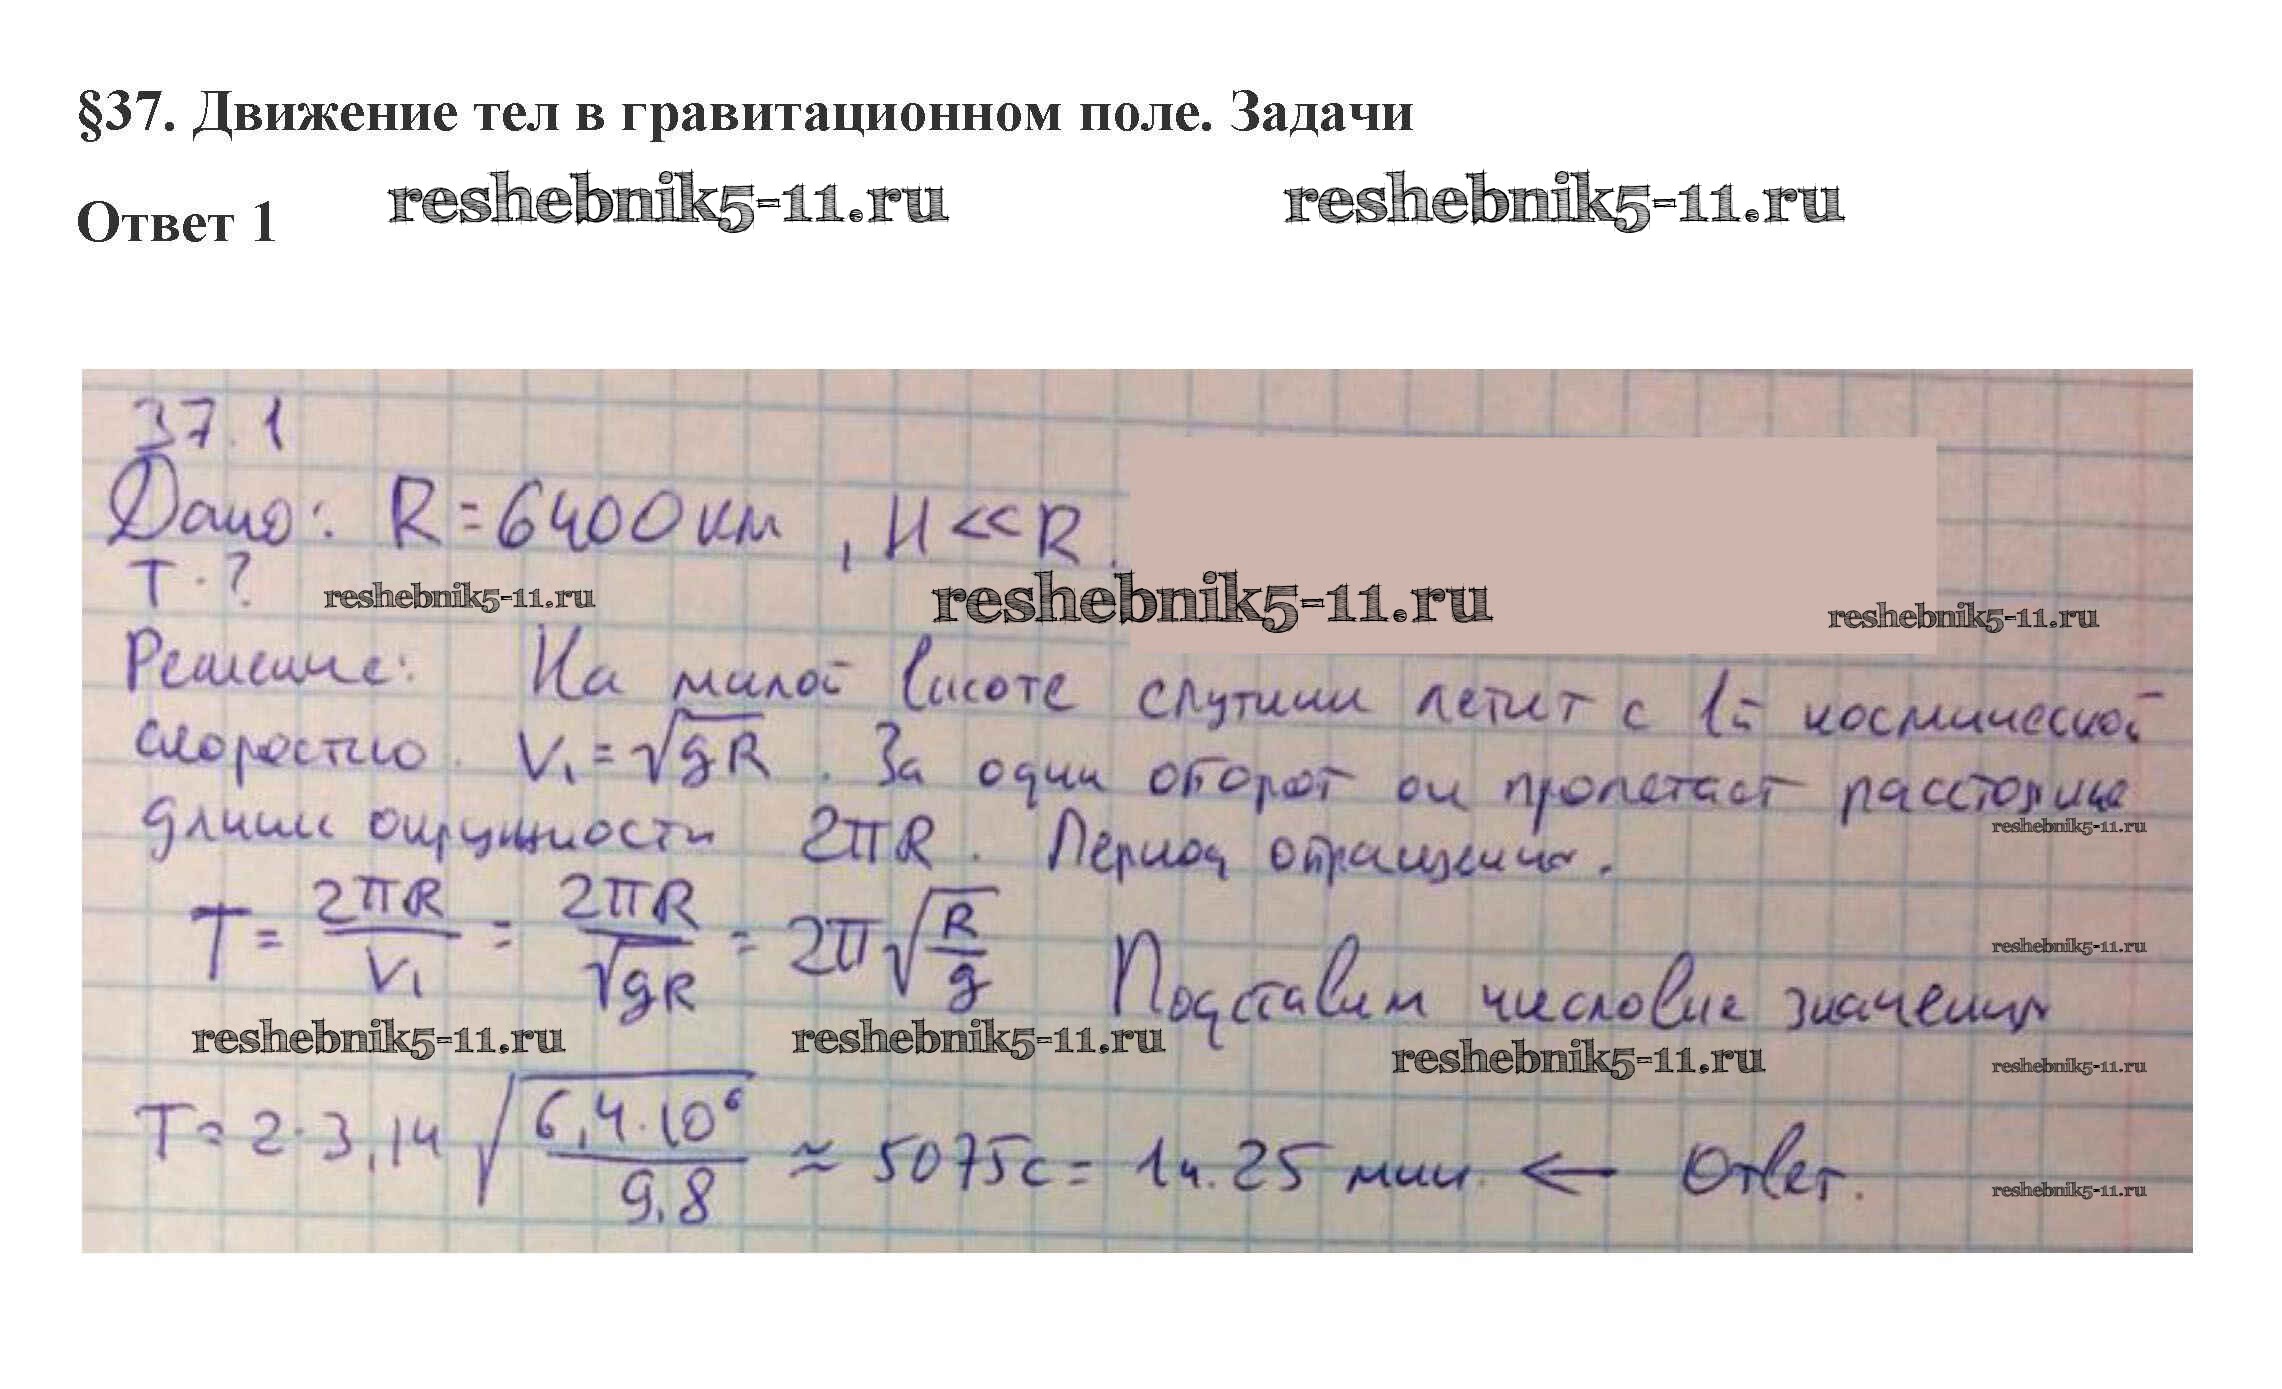 §37. Движение тел в гравитационном поле. Задачи
Ответ 1
reshebnik5-11.ru reshebnik5-11.ru
37.1
Дано: R = 6400 км, H << R.
T - ?
reshebnik5-11.ru reshebnik5-11.ru reshebnik5-11.ru
Решение: На малой высоте спутник летит с 1й космической
скоростью. V₁ = √gR. За один оборот он пролетает расстояние
длины окружности 2πR. Период обращения.
reshebnik5-11.ru
T = 2πR/V₁ = 2πR/√gR = 2π√R/g Подставим числовые значения
reshebnik5-11.ru
reshebnik5-11.ru reshebnik5-11.ru reshebnik5-11.ru reshebnik5-11.ru
T = 2·3,14 √6,4·10⁶/9,8 ≈ 5075с = 1ч. 25 мин. ← Ответ.
reshebnik5-11.ru